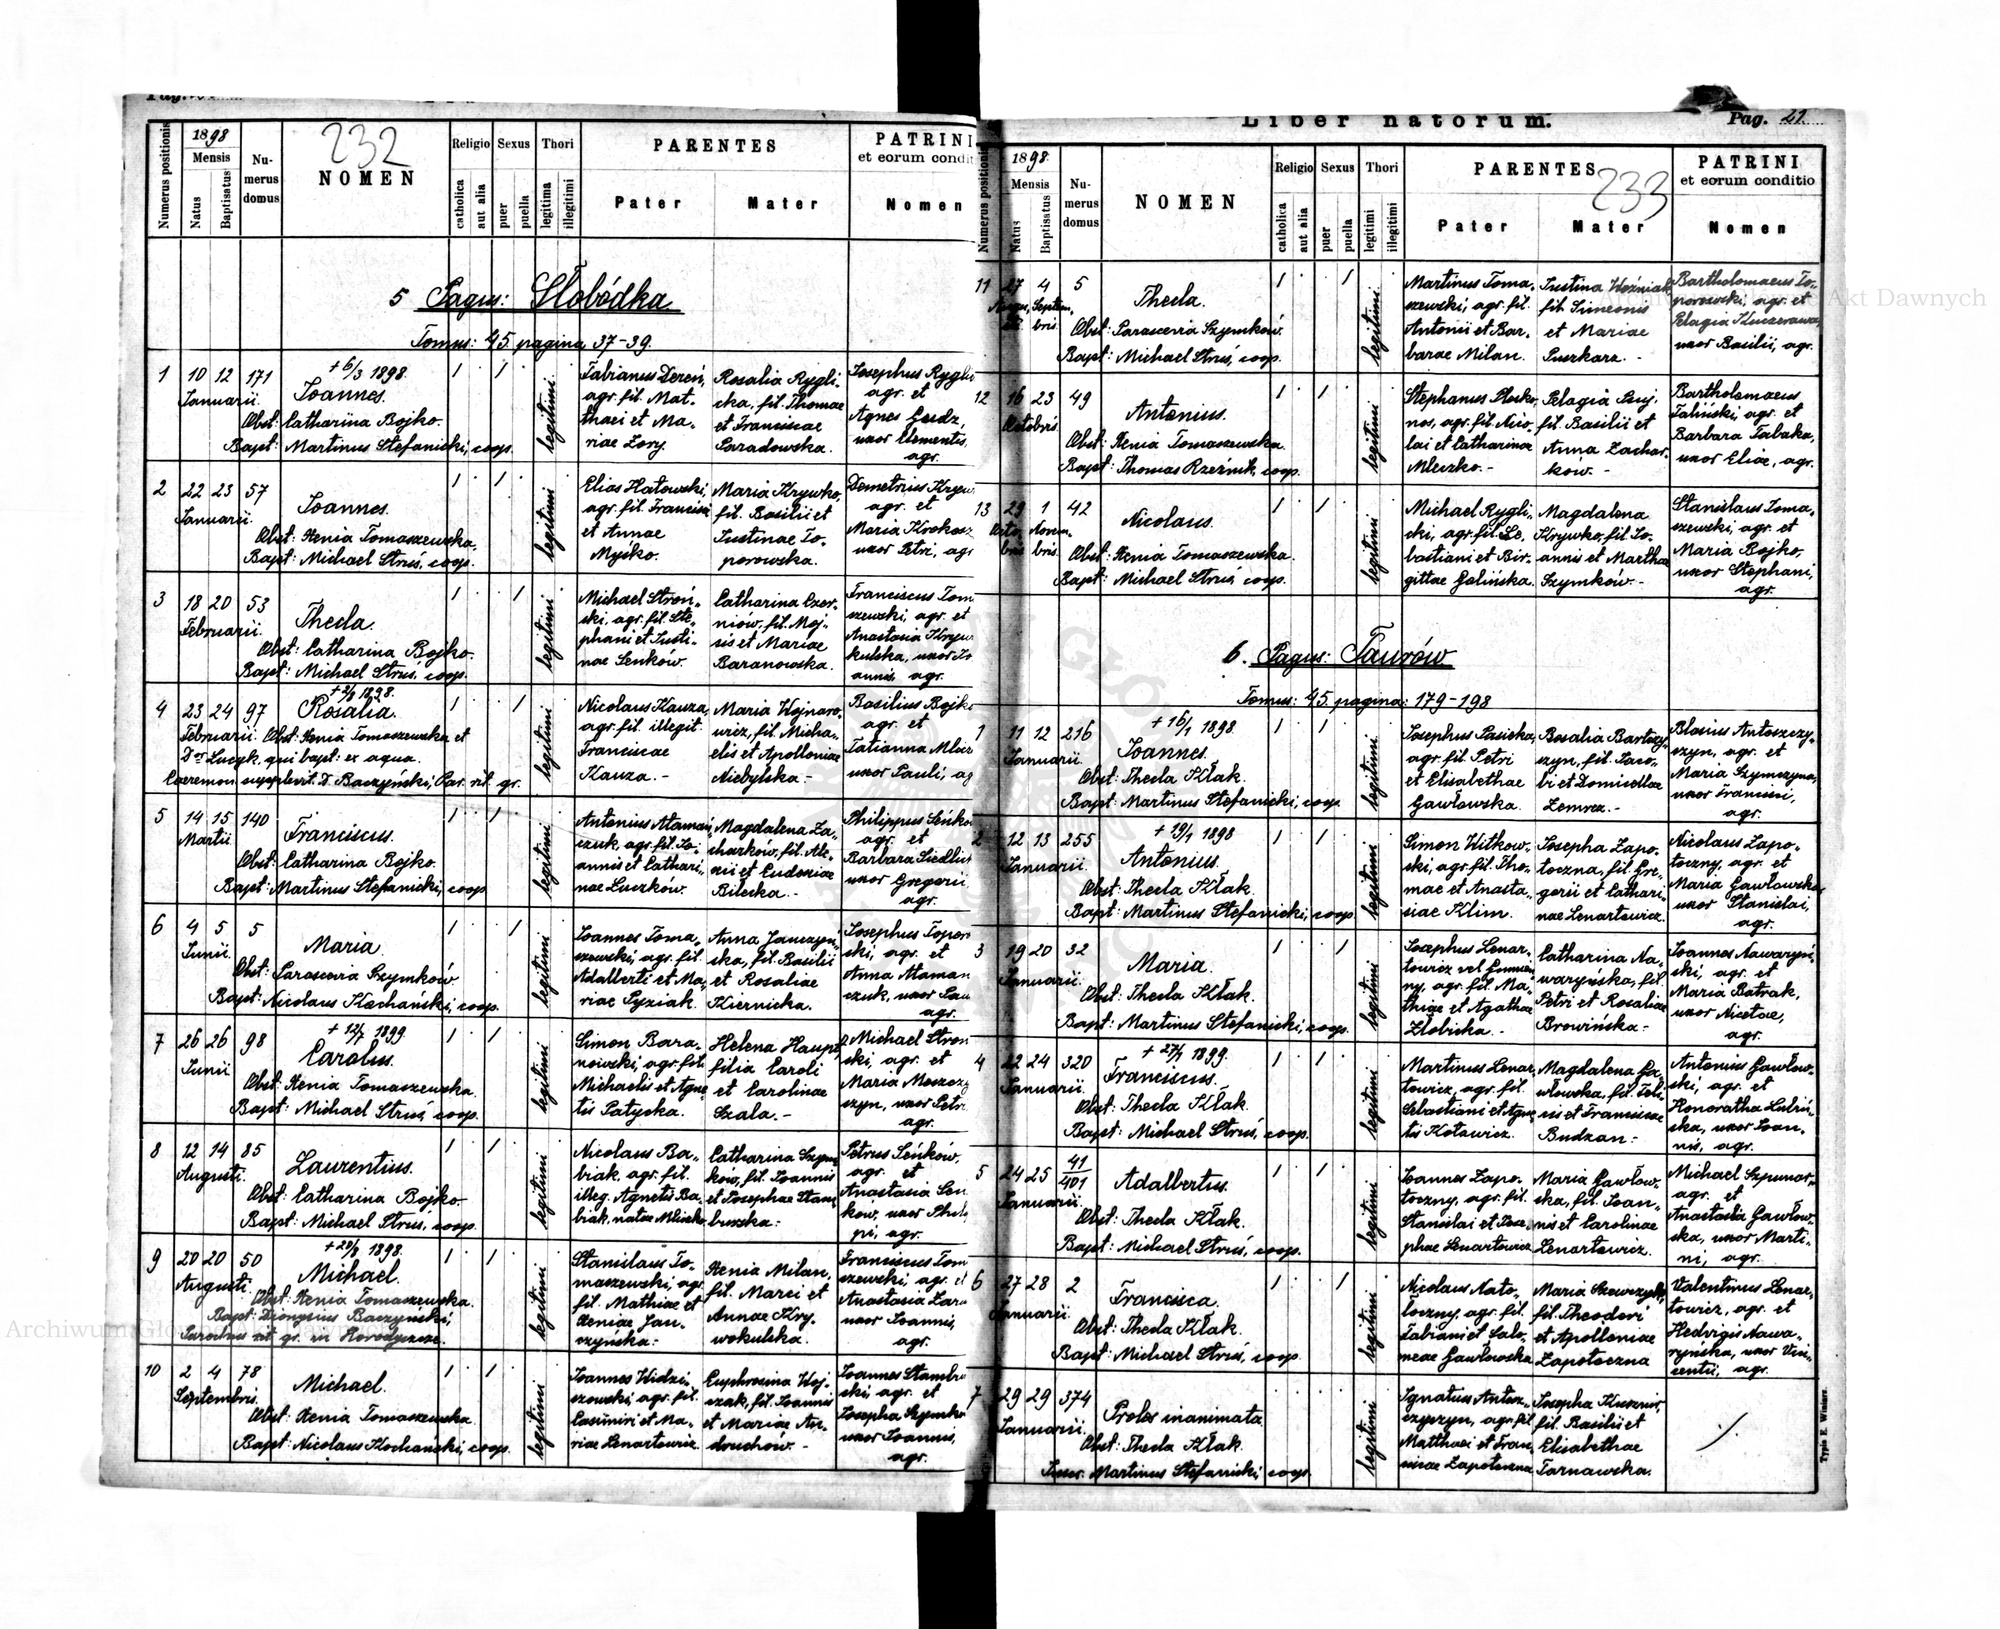 Liber natorum.
Pag. 21.
1898
232
Numerus positionis
Mensis
Natus
Baptisatus
Numerus domus
NOMEN
Religio
catholica
aut alia
Sexus
puer
puella
Thori
legitima
illegitimi
PARENTES
Pater
Mater
PATRINI
et eorum condit
Nomen
5 Pagus: Słobódka.
Tomus: 45. pagina 37-39.
1 10 12 171 Januarii.
+ 6/3 1898.
Joannes.
Obst: Catharina Bojko.
Bapt: Martinus Stefanicki, coop.
legitimi
Fabianus Dereń,
agr. fil. Mat-
thaei et Ma-
riae Zory.
Rosalia Rygli-
cka, fil. Thomae
et Franciscae
Paradowska.
Josephus Rygli
agr. et
Agnes Gudz,
uxor Clementis,
agr.
2 22 23 57 Januarii.
Joannes.
Obst: Xenia Tomaszewska.
Bapt: Michael Struś, coop.
legitimi
Elias Hatowski,
agr. fil. Francisci
et Annae
Myśko.
Maria Krywko,
fil. Basilii et
Justinae To-
porowska.
Demetrius Kryw
agr. et
Maria Krokosz
uxor Petri, agr
3 18 20 53 Februarii.
Thecla.
Obst: Catharina Bojko.
Bapt: Michael Struś, coop.
legitimi
Michael Stroń-
ski, agr. fil. Ste-
phani et Justi-
nae Seńków.
Catharina Czer-
niow, fil. Moj-
sis et Mariae
Baranowska.
Franciscus Tom
szewski, agr. et
Anastasia Kryw
kulska, uxor Jo
annis, agr.
4 23 24 97 Februarii.
+ 2/8 1898.
Rosalia.
Obst: Xenia Tomaszewska et
Dor Lucyk, qui bapt. ex aqua.
Caeremon. supplevit D. Baczyński, Par. rit. gr.
legitimi
Nicolaus Kauza,
agr. fil. illegit.
Franciscae
Kauza.-
Maria Wojnaro-
wicz, fil. Micha-
elis et Apolloniae
Niebylska.-
Basilius Bojk
agr. et
Tatianna Mlecz
uxor Pauli, ag
5 14 15 140 Martii.
Franciscus.
Obst: Catharina Bojko.
Bapt: Martinus Stefanicki, coop
legitimi
Antonius Ataman-
czuk, agr. fil. Jo-
annis et Cathari-
nae Luczków.
Magdalena Za-
charków, fil. Ale-
xii et Eudoxiae
Bilecka.-
Philippus Seńko
agr. et
Barbara Siedlis
uxor Gregorii
agr.
6 4 5 5 Junii.
Maria
Obst: Parascevia Szymków
Bapt: Nicolaus Kochański, coop.
legitimi
Joannes Toma-
szewski, agr. fil.
Adalberti et Ma-
riae Pyziak.
Anna Janczyń-
ska, fil. Basilii
et Rosaliae
Kiernicka.
Josephus Topor
ski, agr. et
Anna Ataman
czuk, uxor Pau
agr.
7 26 26 98 Junii
+ 12/7 1899
Carolus.
Obst: Xenia Tomaszewska.
Bapt: Michael Struś, coop.
legitimi
Simon Bara-
nowski, agr. fil.
Michaelis et Agne-
tis Patycka.
Helena Haupt,
filia Caroli
et Carolinae
Szala.-
Michael Stron
ski, agr. et
Maria Moszcz
szyn, uxor Petr
agr.
8 12 14 85 Augusti.
Laurentius.
Obst: Catharina Bojko
Bapt: Michael Struś, coop.
legitimi
Nicolaus Ba-
biak, agr. fil.
illeg. Agnetis Ba-
biak, natae Mleczko
Catharina Szym-
ków, fil. Joannis
et Josephae Stam-
burska.
Petrus Seńków,
agr. et
Anastasia Sen
kow, uxor Phili
pi, agr.
9 20 20 50 Augusti.
+ 28/8 1898.
Michael.
Obst: Xenia Tomaszewska.
Bapt: Dionysius Baczyński,
Parochus rit. gr. in Horodyszcze.
legitimi
Stanislaus To-
maszewski, agr.
fil. Mathiae et
Xeniae Jan-
czyńska.
Xenia Milan,
fil. Marci et
Annae Kry-
wokulska.
Franciscus Tom
szewski, agr. et
Anastasia Zara
uxor Joannis,
agr.
10 2 4 78 Septembris.
Michael.
Obst: Xenia Tomaszewska.
Bapt: Nicolaus Kochański, coop.
legitimi
Joannes Widzi-
szowski, agr. fil.
Casimiri et Ma-
riae Lenartowicz.
Euphrosina Woj-
czak, fil. Joannis
et Mariae An-
druchów.-
Joannes Stambu
ski, agr. et
Josepha Szymko
uxor Joannis,
agr.
1898.
233
Numerus positionis
Mensis
Natus
Baptisatus
Numerus domus
NOMEN
Religio
catholica
aut alia
Sexus
puer
puella
Thori
legitimi
illegitimi
PARENTES
Pater
Mater
PATRINI
et eorum conditio
Nomen
11 27 4 5 Augusti. Septembris.
Thecla.
Obst: Parascevia Szymków.
Bapt: Michael Struś, coop.
legitimi
Martinus Toma-
szewski, agr. fil.
Antonii et Bar-
barae Milan.
Justina Woźniak
fil. Simeonis
et Mariae
Puszkarz.-
Bartholomaeus To-
porowski, agr. et
Pelagia Kuczerawa,
uxor Basilii, agr.
12 16 23 49 Octobris
Antonius.
Obst: Xenia Tomaszewska.
Bapt: Thomas Rzeźnik, coop.
legitimi
Stephanus Plosko-
nos, agr. fil. Nico-
lai et Catharinae
Mleczko.-
Pelagia Puj,
fil. Basilii et
Anna Zachar-
ków.-
Bartholomaeus
Faliński, agr. et
Barbara Tabaka,
uxor Eliae, agr.
13 29 1 42 Octobris Novembris.
Nicolaus.
Obst: Xenia Tomaszewska.
Bapt: Michael Struś, coop.
legitimi
Michael Rygli-
cki, agr. fil. Se-
bastiani et Bir-
gittae Golińska.
Magdalena
Krywko, fil. Jo-
annis et Marthae
Szymków.-
Stanislaus Toma-
szewski, agr. et
Maria Bojko,
uxor Stephani,
agr.
6. Pagus: Taurów
Tomus: 45. pagina: 179-198
1 11 12 216 Januarii.
+ 16/1 1898.
Joannes.
Obst: Thecla Kłak.
Bapt: Martinus Stefanicki, coop
legitimi
Josephus Pasieka,
agr. fil. Petri
et Elisabethae
Gawłowska.
Rosalia Bartoszy-
szyn, fil. Jaco-
bi et Domicellae
Zemrez.-
Blasius Antoszczy-
szyn, agr. et
Maria Szymczyna,
uxor Francisci,
agr.
2 12 13 255 Januarii.
+ 19/1 1898
Antonius.
Obst: Thecla Kłak.
Bapt: Martinus Stefanicki, coop.
legitimi
Simon Witkow-
ski, agr. fil. Tho-
mae et Anasta-
siae Klim.
Josepha Zapo-
toczna, fil. Gre-
gorii et Cathari-
nae Lenartowicz.
Nicolaus Zapo-
toczny, agr. et
Maria Gawłowska
uxor Stanislai,
agr.
3 19 20 32 Januarii.
Maria.
Obst: Thecla Kłak.
Bapt: Martinus Stefanicki, coop.
legitimi
Josephus Lenar-
towicz vel Gumien-
ny, agr. fil. Ma-
thiae et Agathae
Złobicka.-
Catharina Na-
waryńska, fil.
Petri et Rosaliae
Browińska-
Joannes Nawaryń-
ski, agr. et
Maria Batrak,
uxor Nicetae,
agr.
4 22 24 320 Januarii.
+ 27/1 1899.
Franciscus.
Obst: Thecla Kłak.
Bapt: Michael Struś, coop.
legitimi
Martinus Lenar-
towicz, agr. fil.
Sebastiani et Agne-
tis Kotowicz.
Magdalena Ga-
włowska, fil. Feli-
cis et Franciscae
Budzan.-
Antonius Gawłow-
ski, agr. et
Honoratha Lubiń-
ska, uxor Joan-
nis, agr.
5 24 25 41/401 Januarii.
Adalbertus.
Obst: Thecla Kłak.
Bapt: Michael Struś, coop.
legitimi
Joannes Zapo-
toczny, agr. fil.
Stanislai et Jose-
phae Lenartowicz
Maria Gawłow-
ska, fil. Joan-
nis et Carolinae
Lenartowicz.
Michael Szpunar,
agr. et
Anastasia Gawłow-
ska, uxor Marti-
ni, agr.
6 27 28 2 Januarii.
Francisca.
Obst: Thecla Kłak.
Bapt: Michael Struś, coop
legitimi
Nicolaus Nato-
łoczny, agr. fil.
Fabiani et Salo-
meae Gawłowska
Maria Szewczyk,
fil. Theodori
et Apolloniae
Zapotoczna
Valentinus Lenar-
towicz, agr. et
Hedvigis Nawa-
ryńska, uxor Vin-
centii, agr.
7 29 29 374 Januarii.
Proles inanimata.
Obst: Thecla Kłak.
Martinus Stefanicki, coop.
legitimi
Ignatius Antosz-
czyszyn, agr. fil.
Matthaei et Fran-
ciscae Zapotoczna
Josepha Kusznir,
fil. Basilii et
Elisabethae
Tarnawska.
Typis E. Winiarz.
Archiwum Główne Akt Dawnych